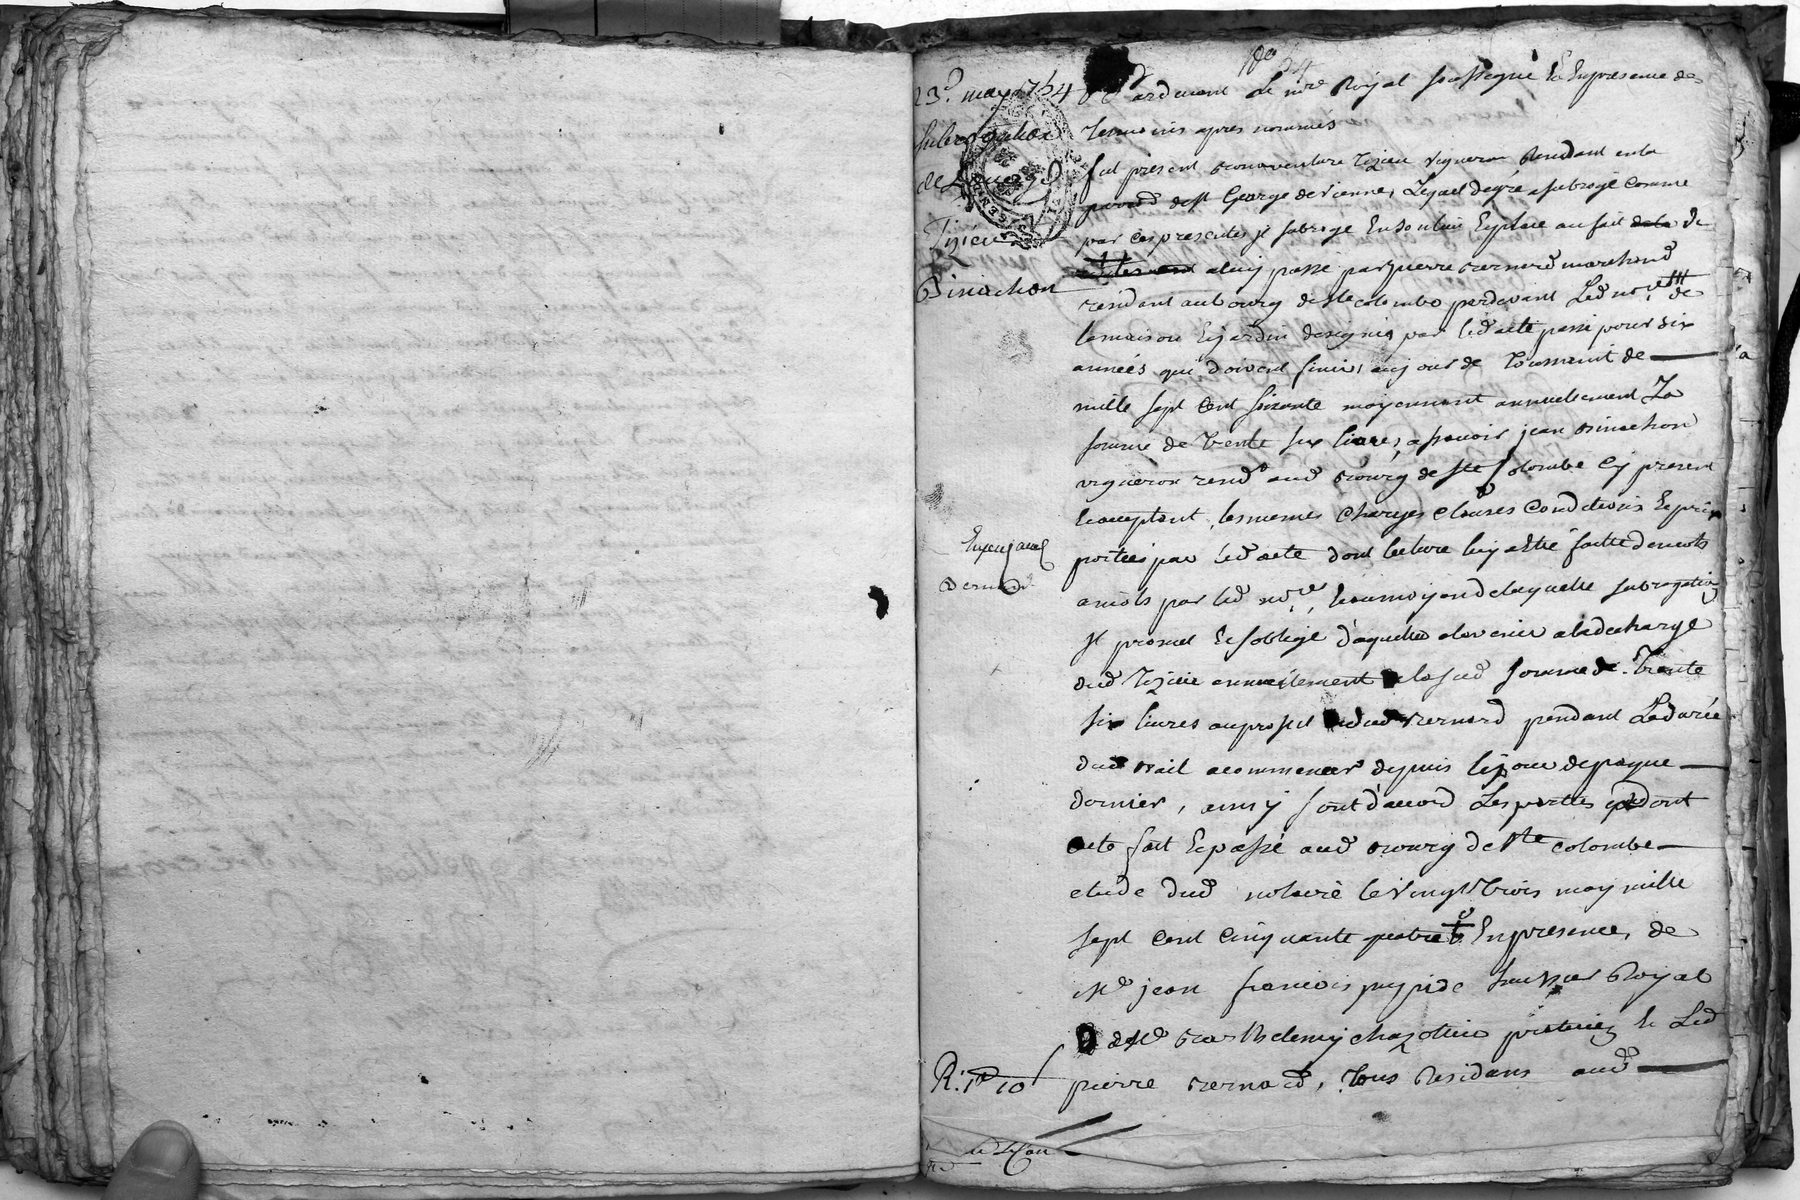 23e. may 1754
Subrogation
de Louage
Tizieu
a
Pinachon
Expedié aud
Bernard
R. 1tt 10s
Pardevant Le nre Royal soussigné Et En presence des
temoins apres nommés
fut present Bonaventure Tizieu vigneron Residant en la
paroisse de st George de vienne, Lequel de gré a subrogé Comme
par ces presentes il subroge En son lieu Et place au fait de la de
a luy passé par pierre Bernard marchand
residant au bourg de ste colombe pardevant Led nore de
la maison Et jardin designés par led acte passé pour six
années qui doivent finir, au jour de Toussaint de
mille sept Cent soixante moyennant annuelement La
somme de trente six livres, a sçavoir jean Pinachon
vigneron resid. aud Bourg de ste Colombe Cy present
Et acceptant, les memes Charges Clauses Conditions Et prix
portées par led acte dont lecture luy a été faitte de mots
a mots par led nore, Et au moyend de laquelle subrogation
Il promet Et s'oblige d'aquitter a l'avenir a la decharge
dud Tizieu annuelement la sud somme de trente
six livres au profit dud Bernard pendant La durée
dud Bail a commencer depuis le jour de paque
dernier, ainsy sont d'accord Les parties dont
acte fait Et passé aud Bourg de ste colombe
etude dud notaire le vingt trois may mille
sept cent cinquante quatre En presence, de
Me jean francois huissier Royal
& de Me Barthelemy chazottier praticien Et Led
pierre Bernard, tous Residans aud